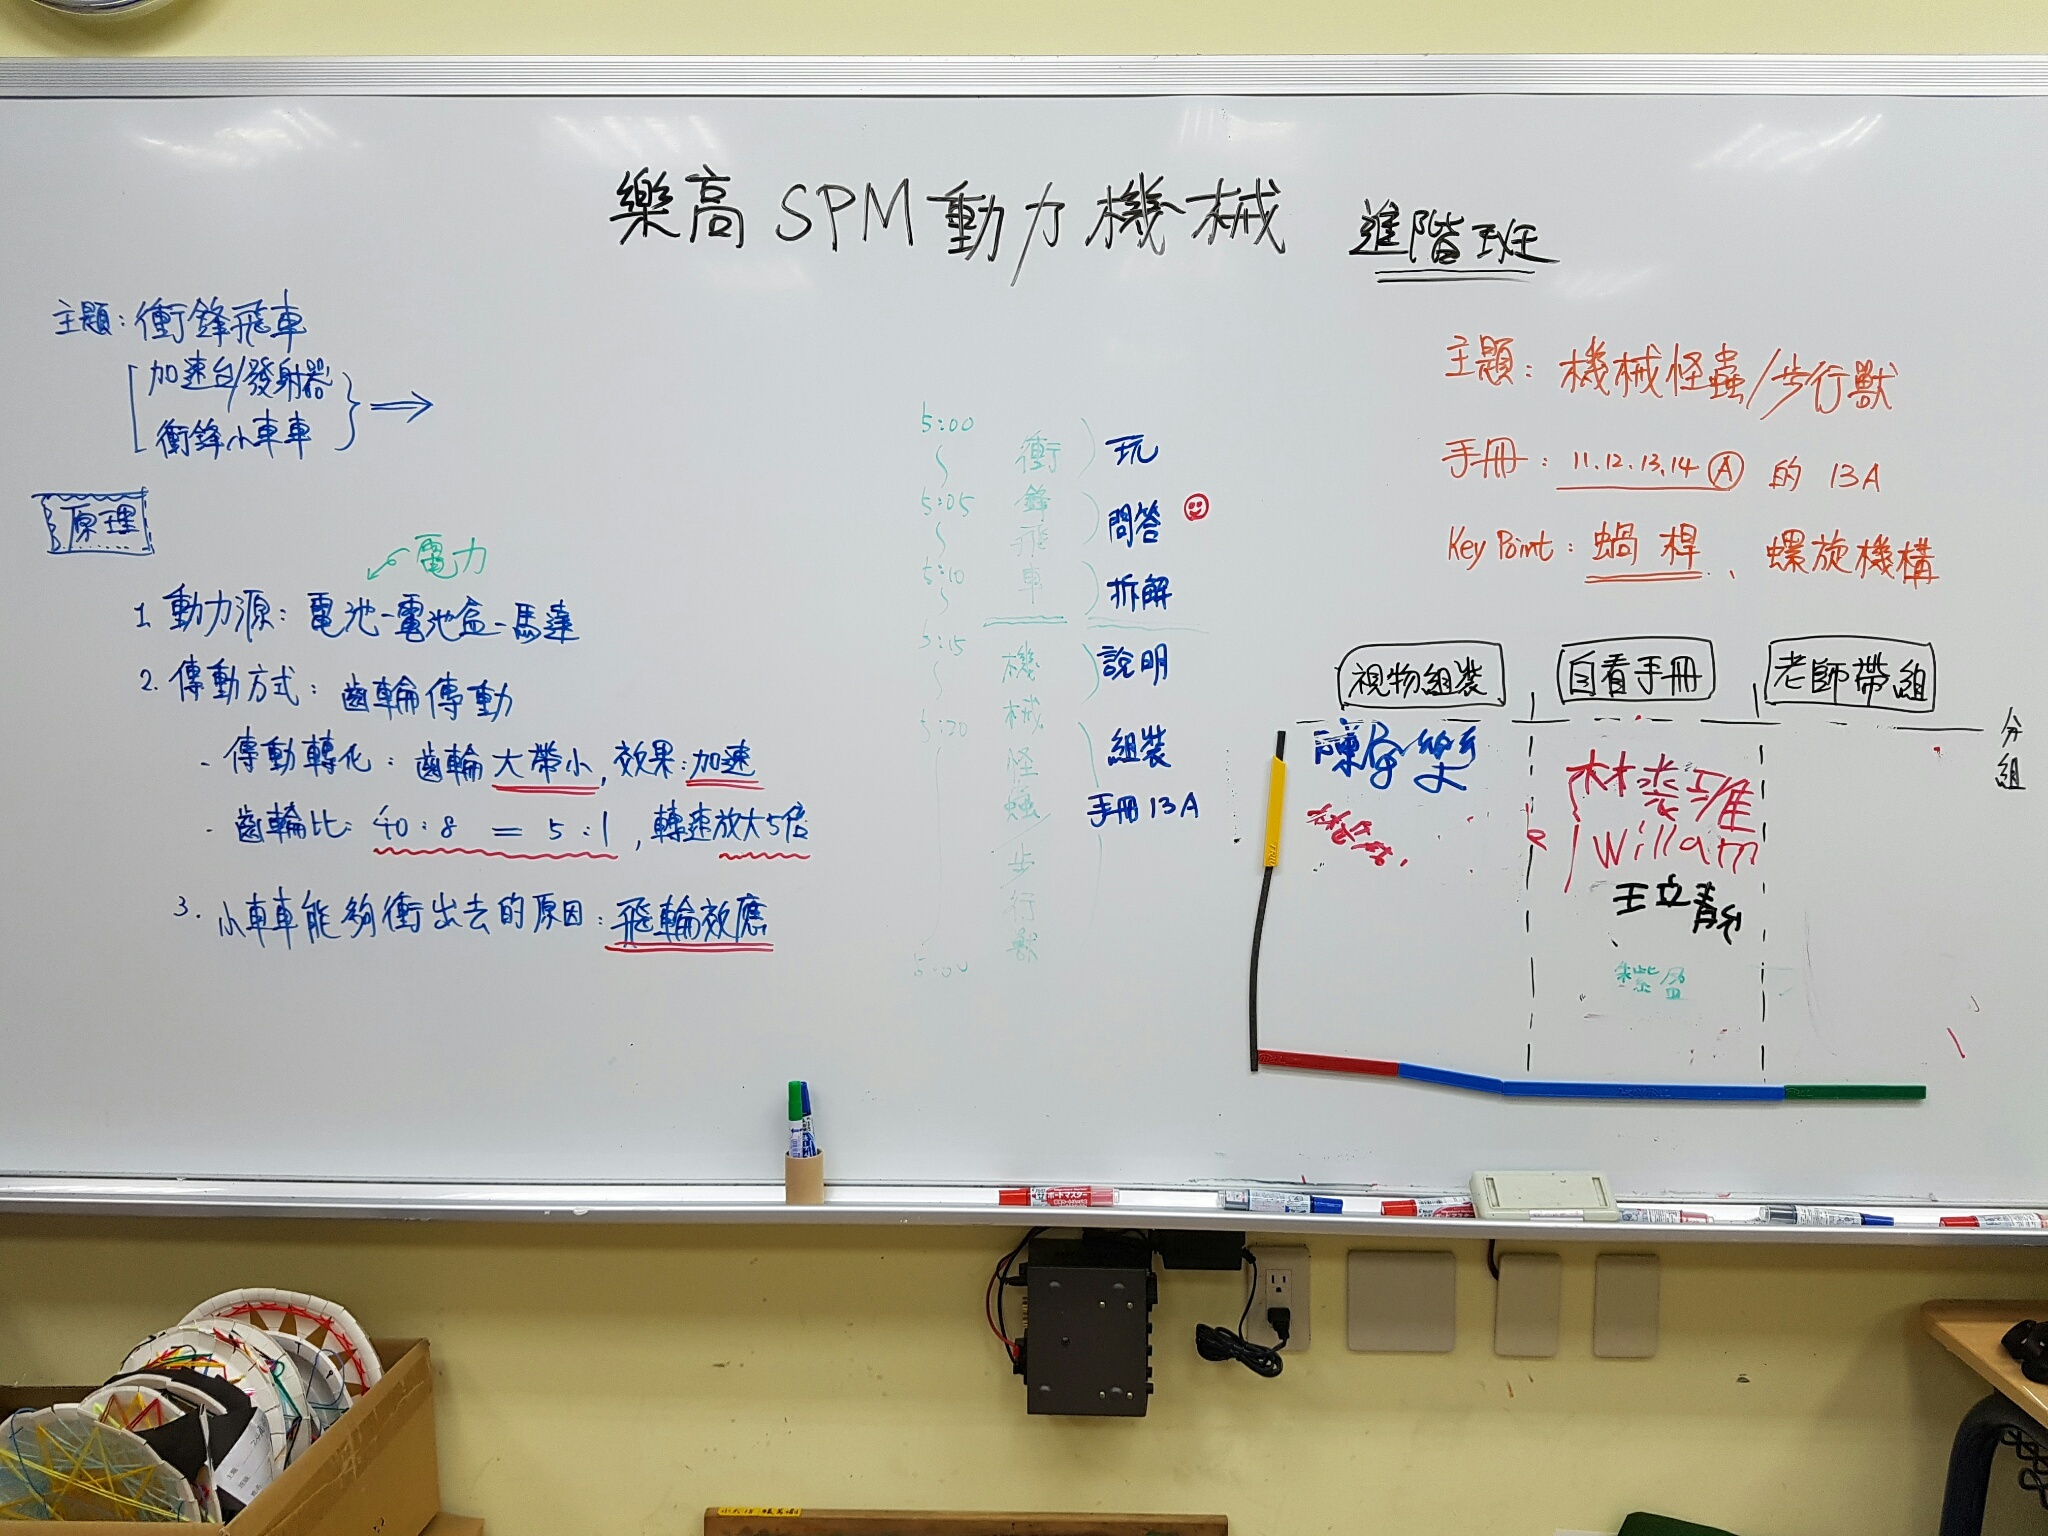 樂高 SPM 動力機械 進階班
主題：衝鋒飛車
加速台/發射器
衝鋒小車車
原理
電力
1. 動力源：電池-電池盒-馬達
2. 傳動方式：齒輪傳動
- 傳動轉化：齒輪大帶小, 效果：加速
- 齒輪比：40:8 = 5:1, 轉速放大5倍
3. 小車車能夠衝出去的原因：飛輪效應
5:00
5:05
5:10
5:15
5:20
衝鋒飛車
機械怪蟲/步行獸
玩
問答
拆解
說明
組裝
手冊 13A
主題：機械怪蟲/步行獸
手冊：11.12.13.14 Ⓐ 的 13A
Key Point：蝸桿、螺旋機構
視物組裝 自看手冊 老師帶組
分組
Willam
王立